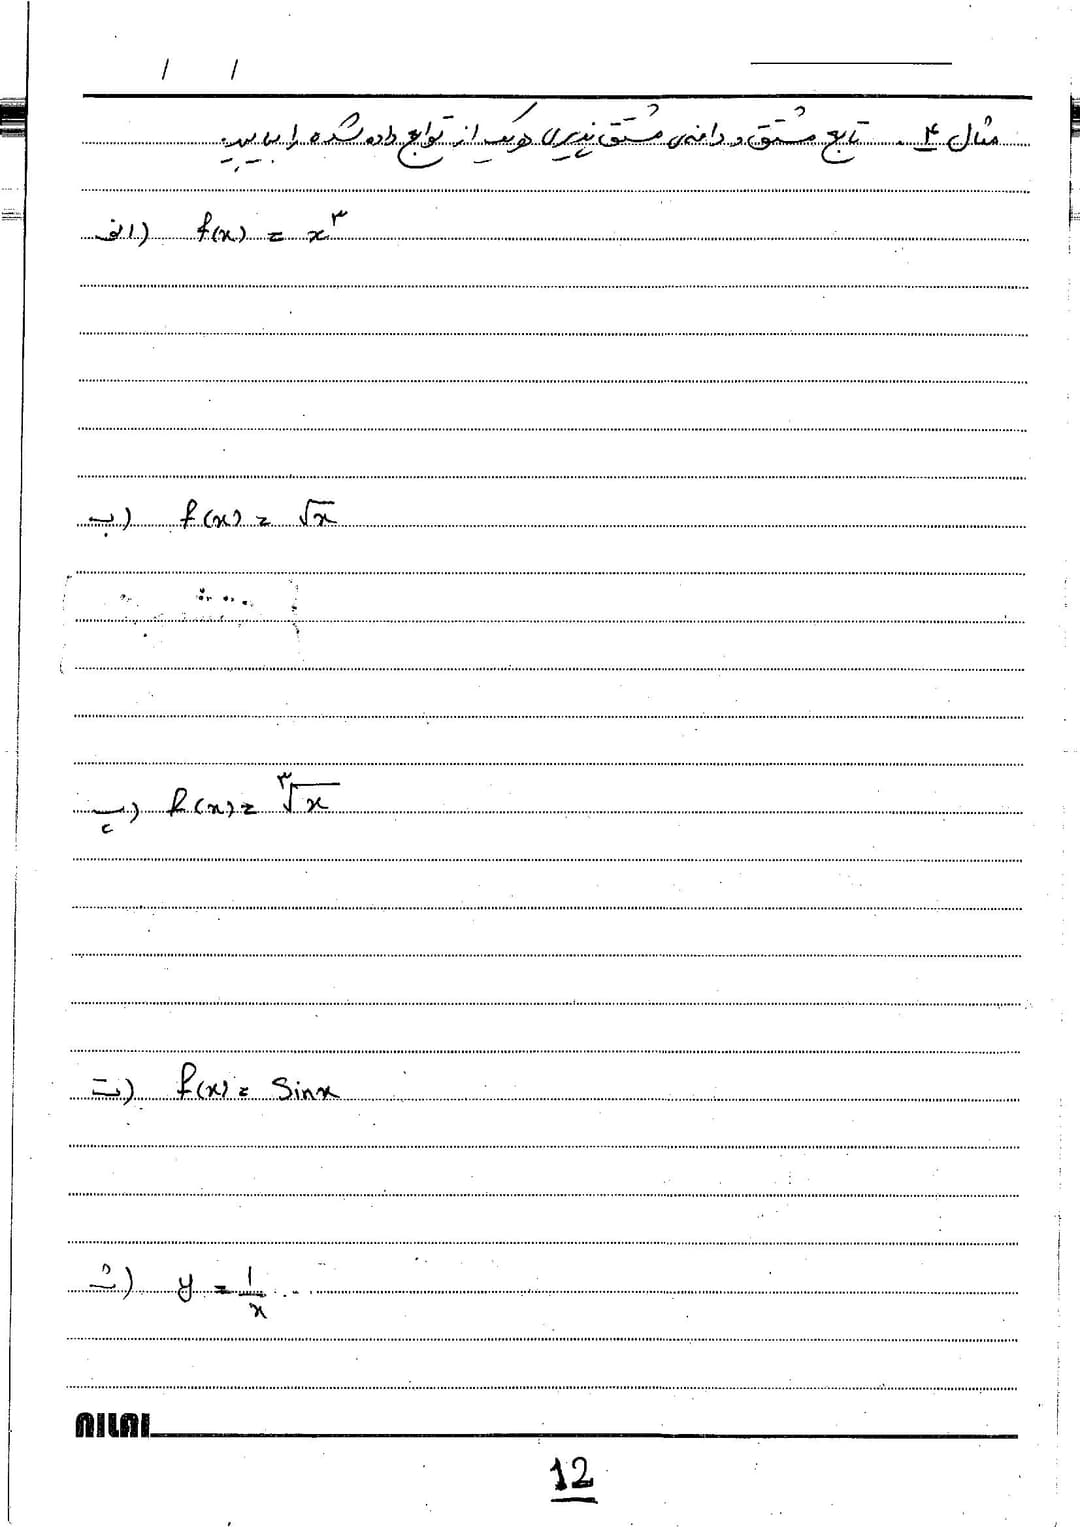 / /
مثال ۴. تابع مشتق و دامنه‌ی مشتق‌پذیری هر یک از توابع داده شده را بیابید.
الف) f(x) = x^۳
ب) f(x) = √x
پ) f(x) = ^۳√x
ت) f(x) = Sinx
ث) y = 1/x
NILAI
12